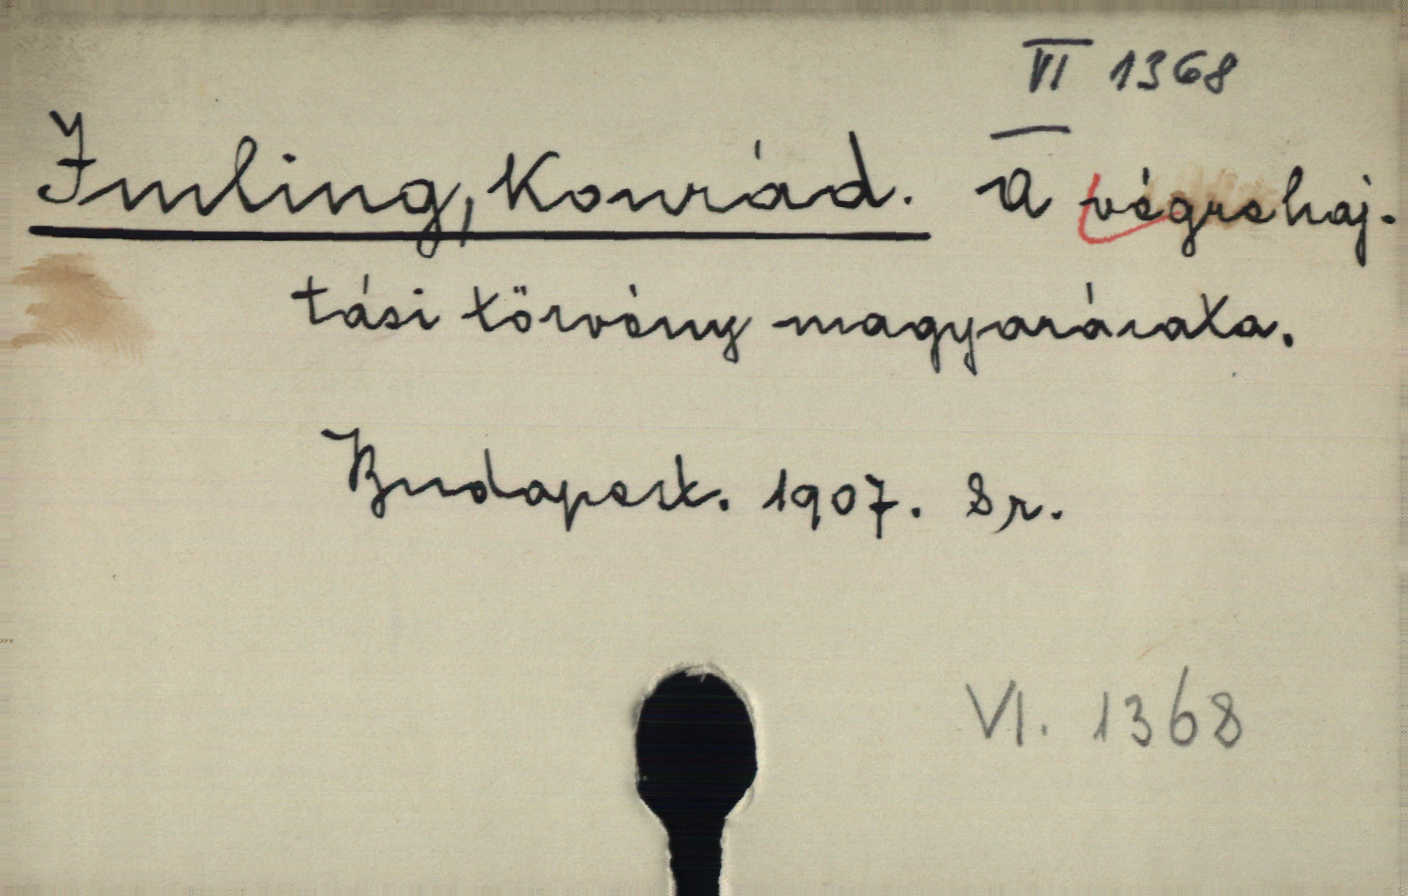 VI 1368
Imling, Konrád. A végrehaj-
tási törvény magyarázata.
Budapest. 1907. 8r.
VI. 1368